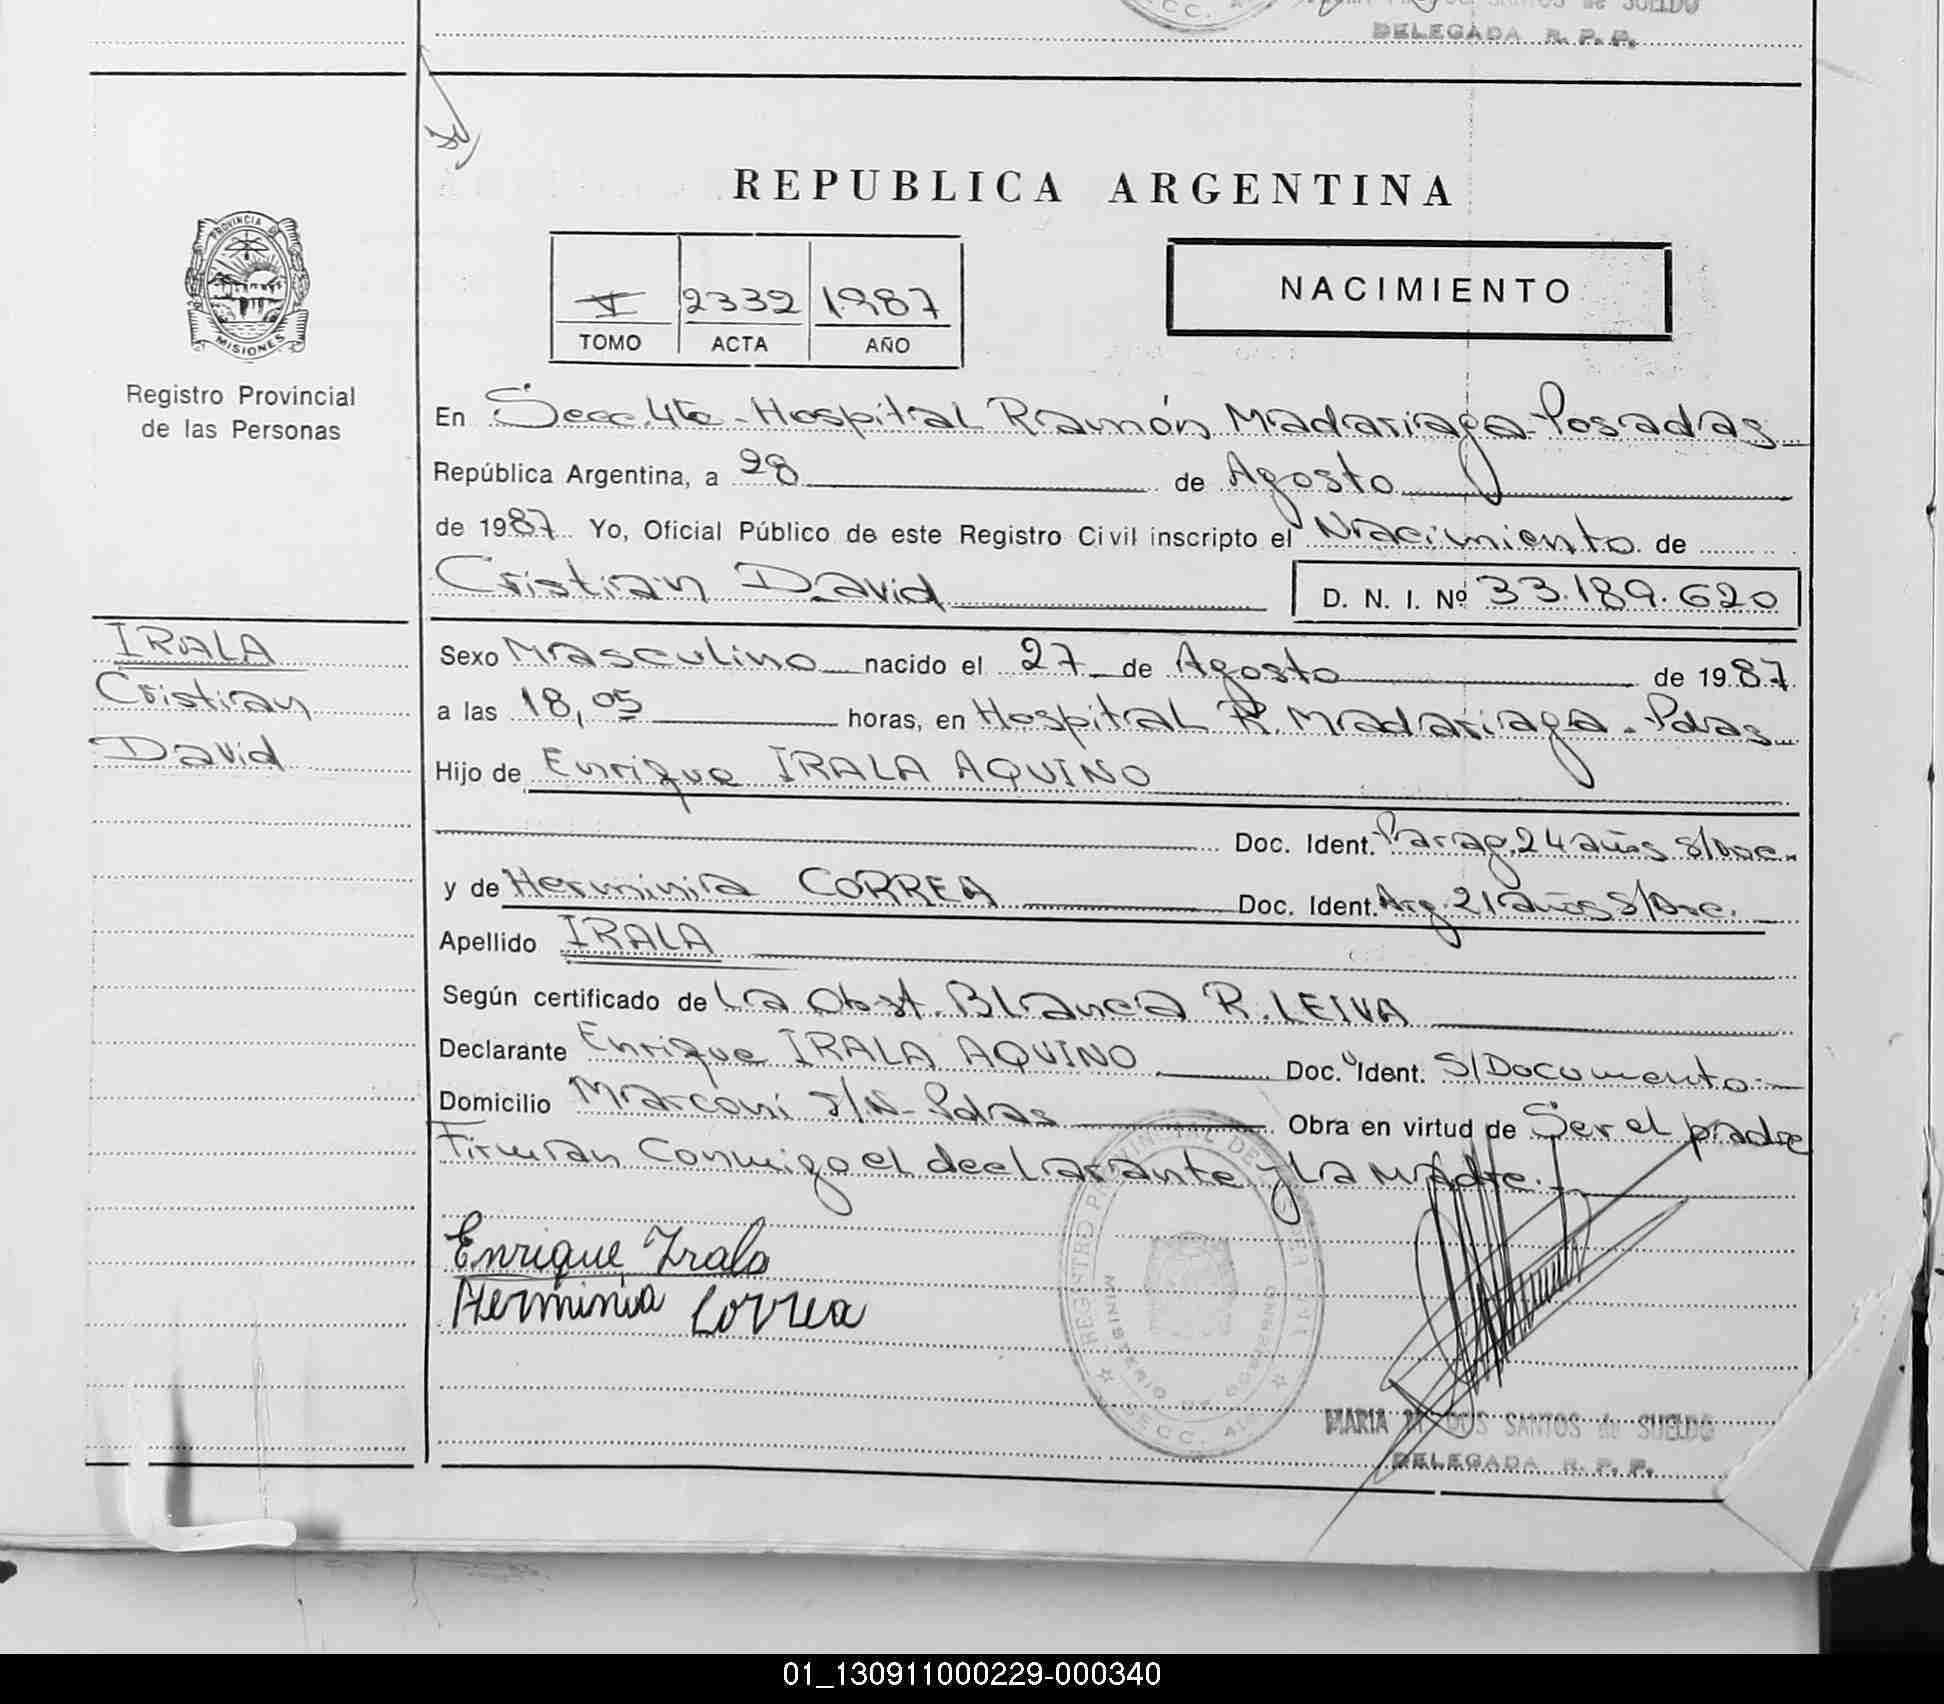 DELEGADA R. P. P.
REPUBLICA ARGENTINA
PROVINCIA DE
MISIONES
Registro Provincial
de las Personas
V 2332 1987
TOMO ACTA AÑO
NACIMIENTO
En Secc. 4ta - Hospital Ramón Madariaga - Posadas
República Argentina, a 28 de Agosto
de 1987 Yo, Oficial Público de este Registro Civil inscripto el Nacimiento de
Cristian David D. N. I. Nº 33.189.620
IRALA
Cristian
David
Sexo Masculino nacido el 27 de Agosto de 1987
a las 18,05 horas, en Hospital R. Madariaga - Pdas
Hijo de Enrique IRALA AQUINO
Doc. Ident. Parag. 24 años S/Doc.
y de Herminia CORREA Doc. Ident. Arg. 21 años S/Doc.
Apellido IRALA
Según certificado de La Obst. Blanca R. LEIVA
Declarante Enrique IRALA AQUINO Doc. Ident. S/Documento
Domicilio Marconi S/N - Pdas Obra en virtud de Ser el padre
Firman Conmigo el declarante y La Madre.
Enrique Irala
Herminia Correa
REGISTRO PROVINCIAL DE LAS PERSONAS
MINISTERIO DE GOBIERNO
SECC. 4ta
MARIA DOS SANTOS de SUELDO
DELEGADA R. P. P.
01_130911000229-000340